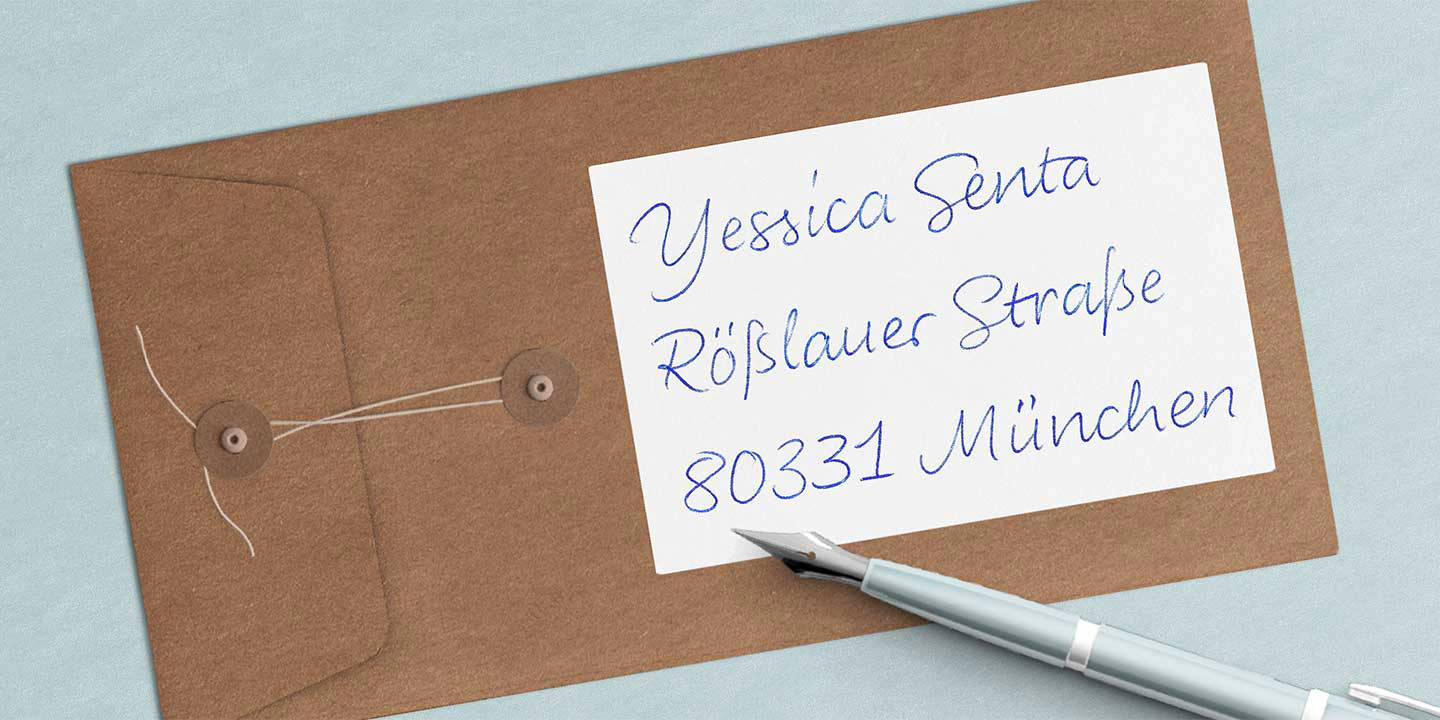 Yessica Senta
Rößlauer Straße
80331 München